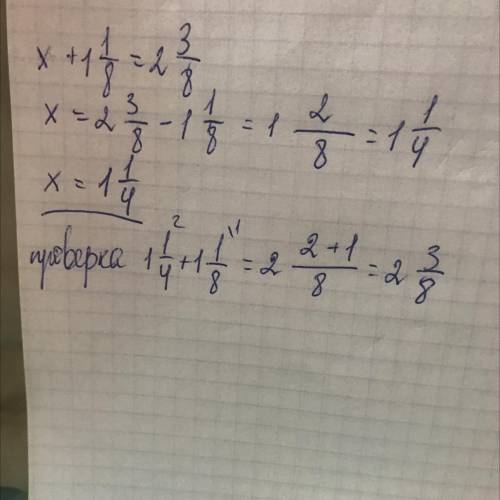 x + 1 1/8 = 2 3/8
x = 2 3/8 - 1 1/8 = 1 2/8 = 1 1/4
x = 1 1/4
проверка 1 1/4 ² + 1 1/8 ¹ = 2 2+1/8 = 2 3/8